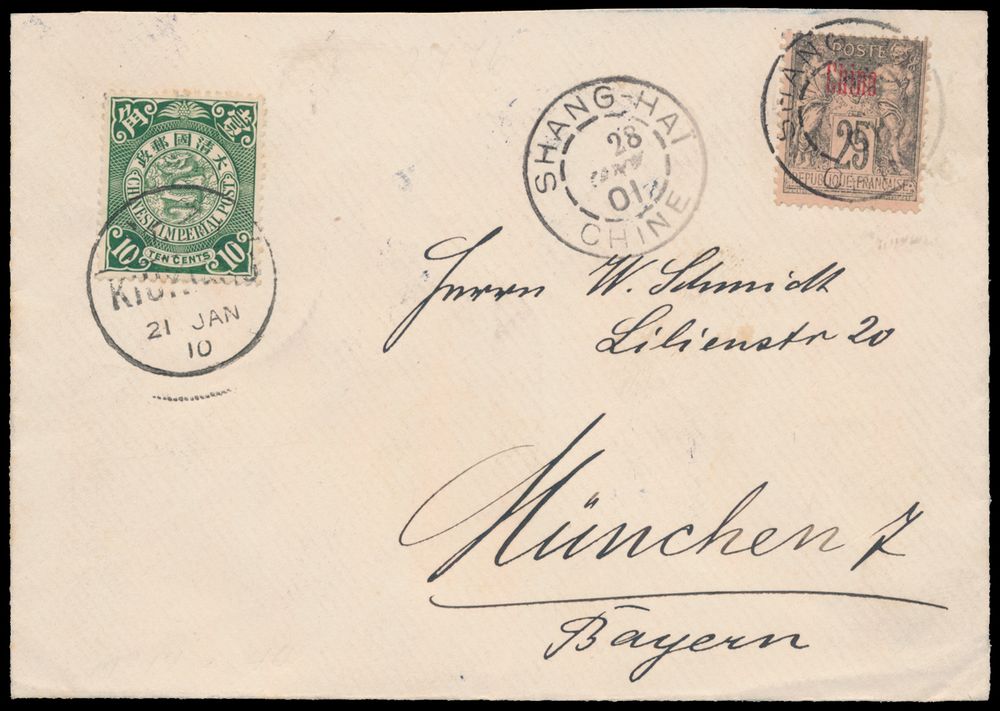 POSTE
China
25
REPUBLIQUE FRANÇAISE
SHANG
SHANG-HAÏ
28
JANV
01
CHINE
角 壹
大清國郵政
CHINESE IMPERIAL POST
10 TEN CENTS 10
21 JAN
10
Herrn W. Schmidt
Lilienstr 20
München 7
Bayern